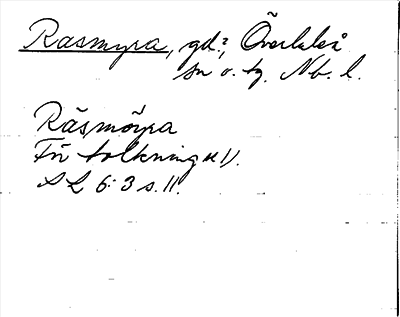 Rasmyra, gd?, Överluleå
sn o. tg. Nb. l.
Räsmöyra
För tolkning
SL 6:3 s. 11.